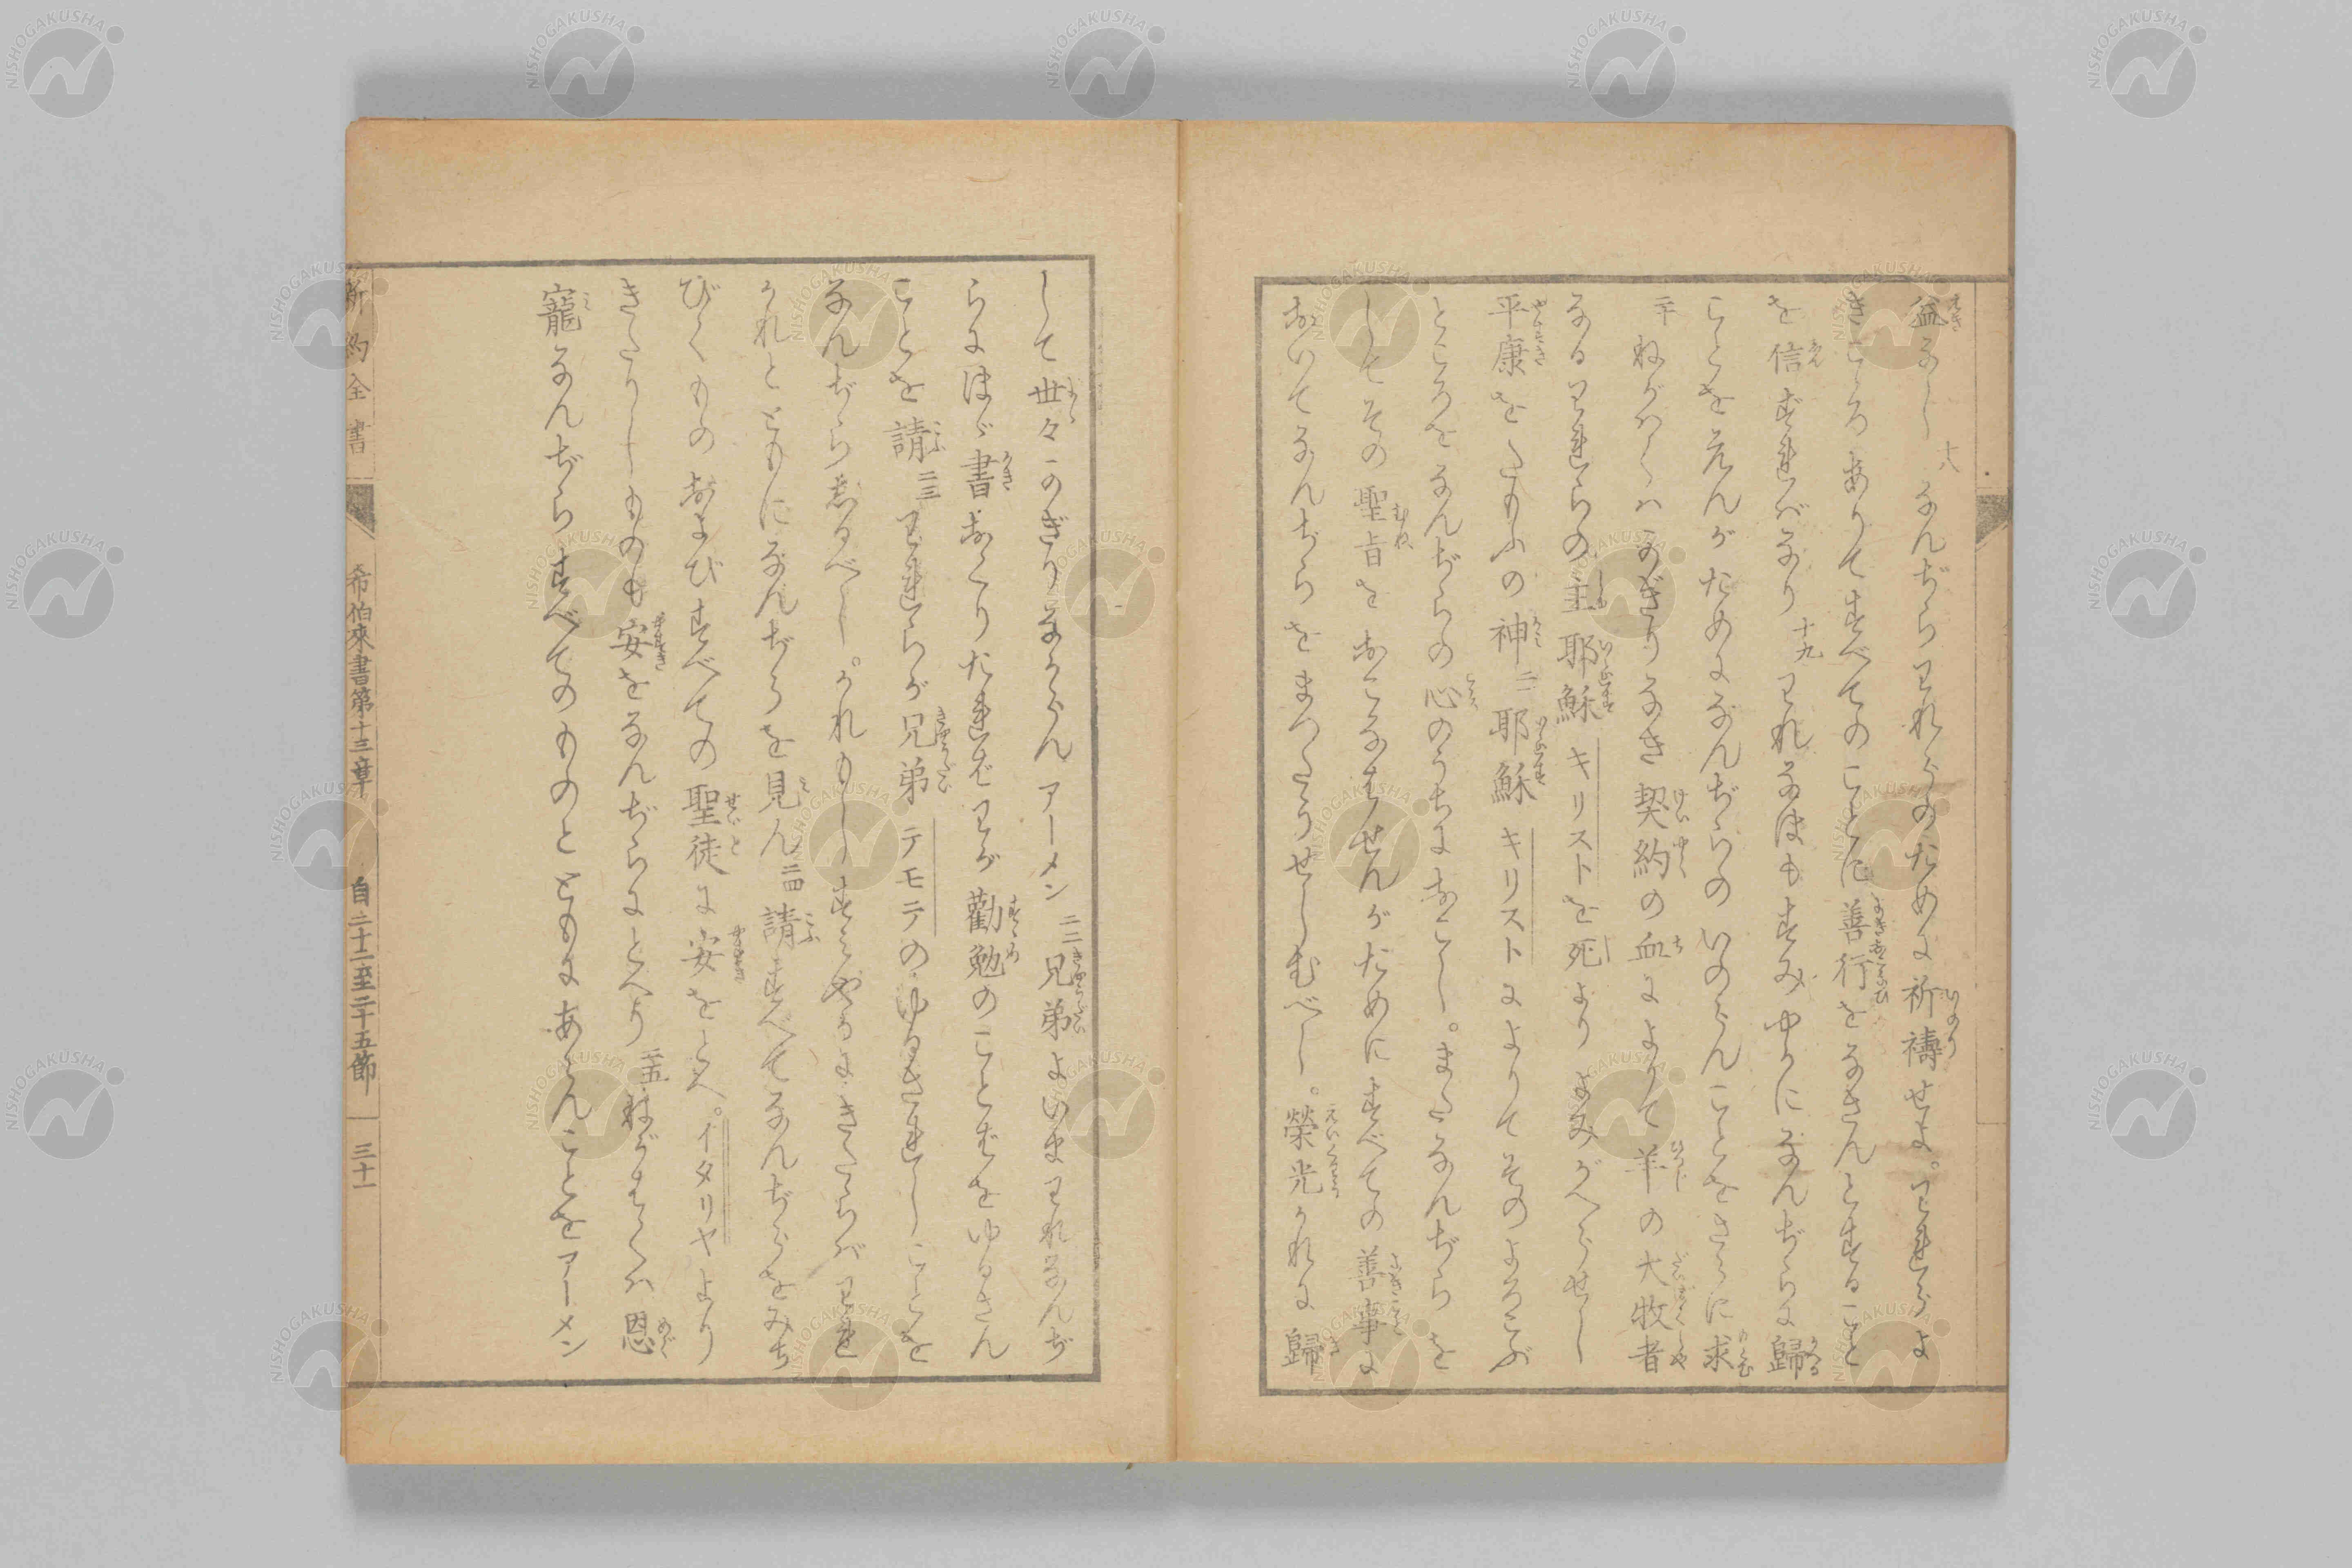 益なし 十八 なんぢらわれらのために祈禱せよ。われらよ
きこゝろありてすべてのことに善行をなさんとすること
を信ずればなり 十九 われなほもすみやかになんぢらに歸
ことをえんがためになんぢらのいのらんことをさらに求
二十 ねがはくハかぎりなき契約の血によりて羊の大牧者
なるわれらの主耶穌キリストを死よりよみがへらせし
平康をたもふの神 二一 耶穌キリストによりてそのよろこぶ
ところをなんぢらの心のうちにおこし。またなんぢらを
してその聖旨をおこなはせんがためにすべての善事に
おいてなんぢらをまつたうせしむべし。榮光かれに歸
して世々かぎりなからんアーメン 二二 兄弟よいまわれなんぢ
らにほゞ書おくりたればわが勸勉のことばをゆるさん
ことを請 二三 われらが兄弟テモテのゆるされしことを
なんぢら志るべし。かれもしすみやかにきたらバわれ
かれとともになんぢらを見ん 二四 請すべてなんぢらをみち
びくものおよびすべての聖徒に安をとへ。イタリヤより
きたりしものも安をなんぢらにとへり 二五 ねがはくハ恩
寵なんぢらすべてのものとともにあらんことをアーメン
新約全書 希伯來書第十三章 自二十二至二十五節 三十一
NISHOGAKUSHA